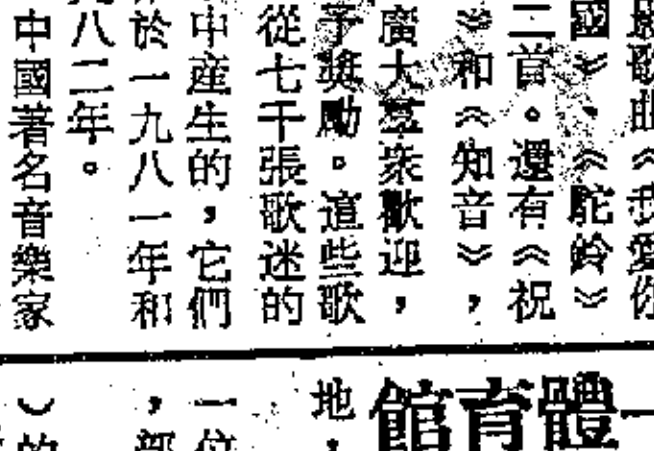 歌曲《我愛你
國》、《駝鈴》
二首。還有《祝
》和《知音》,
廣大羣衆歡迎,
予獎勵。這些歌
從七千張歌迷的
中産生的,它們
於一九八一年和
八二年。
中國著名音樂家
體育館
地,
一位
,部
)的